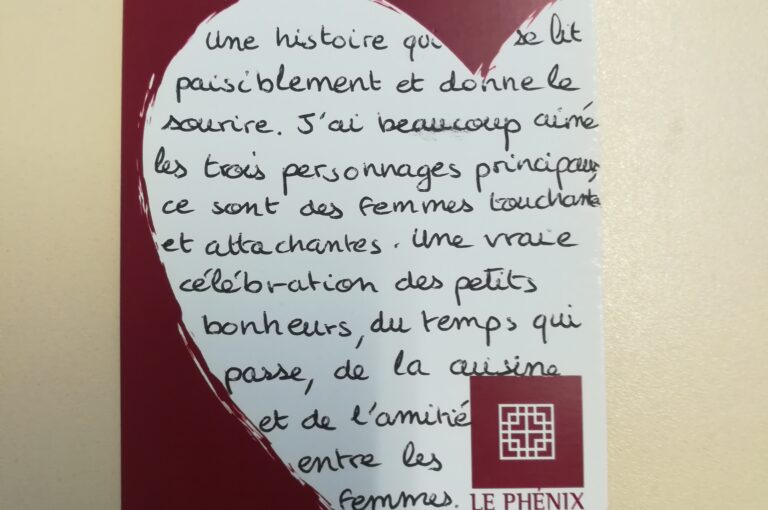 Une histoire qui se lit
paisiblement et donne le
sourire. J'ai beaucoup aimé
les trois personnages principaux,
ce sont des femmes touchantes
et attachantes. Une vraie
célébration des petits
bonheurs, du temps qui
passe, de la cuisine
et de l'amitié
entre les
femmes.
LE PHÉNIX